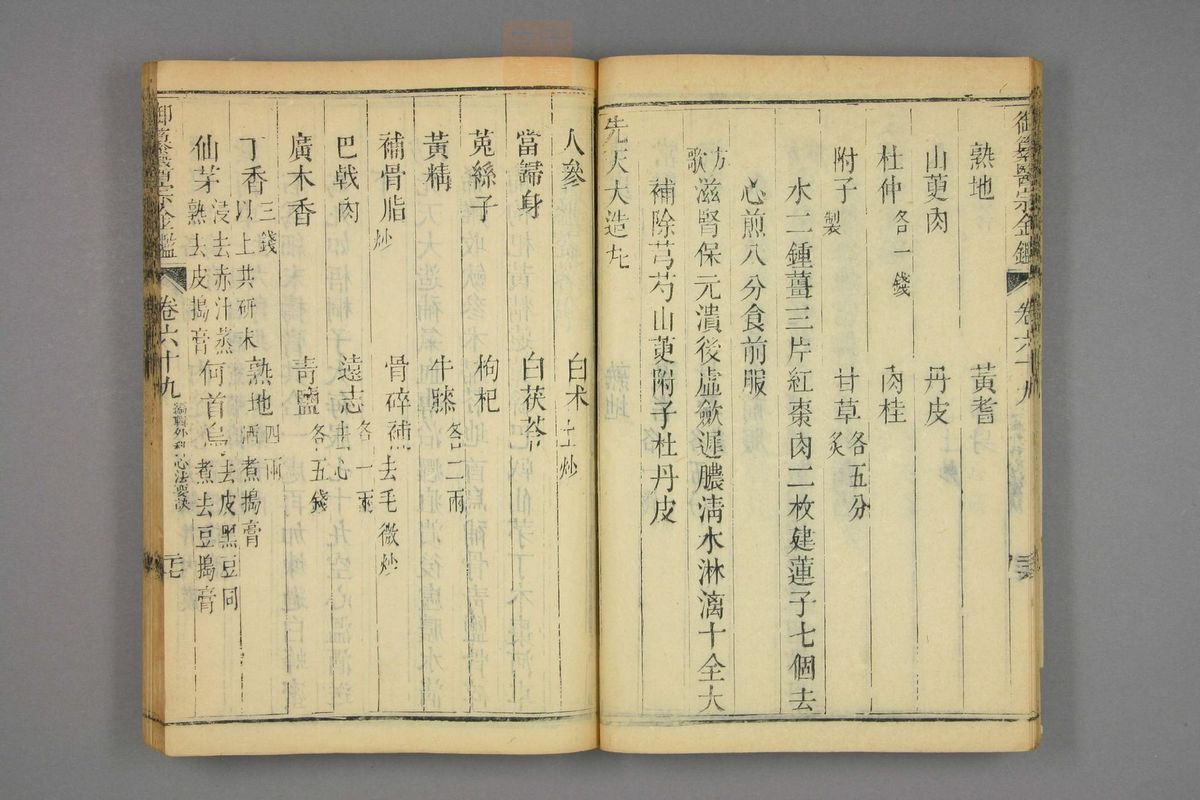 御纂醫宗金鑑 卷六十九
熟地 黃耆
山萸肉 丹皮
杜仲各一錢 肉桂
附子製 甘草炙 各五分
水二鍾薑三片紅棗肉二枚建蓮子七個去
心煎八分食前服
方歌 滋腎保元潰後虛斂遲膿清水淋漓十全大
補除芎芍山萸附子杜丹皮
先天大造丸
人參 白朮土炒
當歸身 白茯苓
菟絲子 枸杞
黃精 牛膝各二兩
補骨脂炒 骨碎補去毛微炒
巴戟肉 遠志去心 各一兩
廣木香 青鹽各五錢
丁香三錢以上共研末 熟地四兩酒煮搗膏
仙芽浸去赤汁蒸熟去皮搗膏 何首烏去皮黑豆同煮去豆搗膏
御纂醫宗金鑑 卷六十九 編輯外科心法要訣 二七